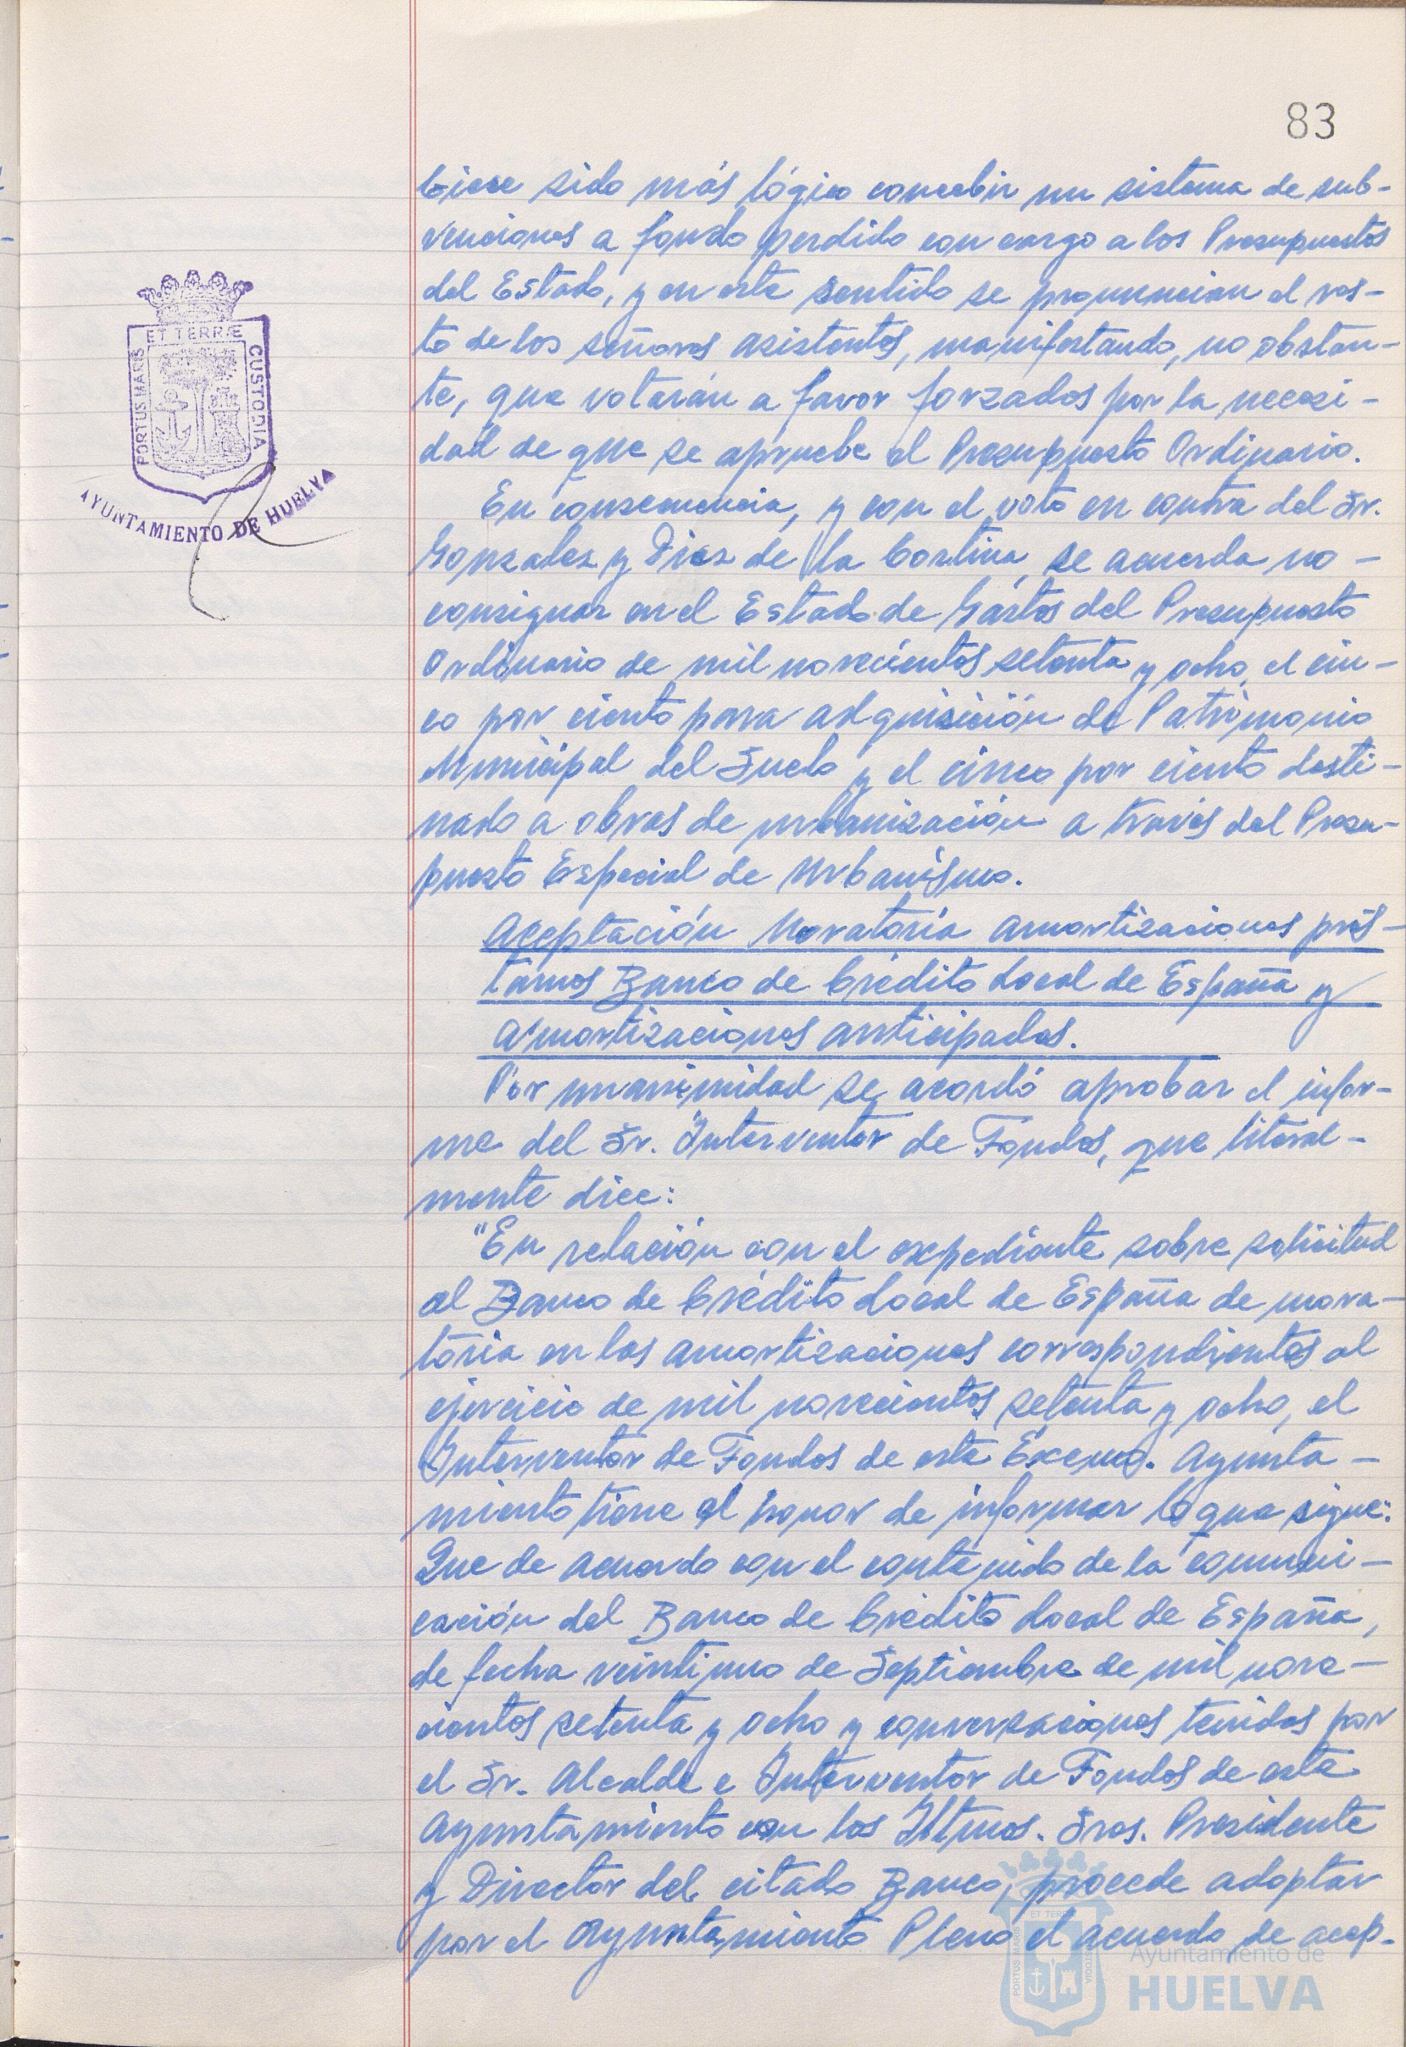 83
biese sido más lógico concebir un sistema de sub-
venciones a fondo perdido con cargo a los Presupuestos
del Estado, y en este sentido se pronuncian el res-
to de los señores asistentes, manifestando, no obstan-
te, que votarán a favor forzados por la necesi-
dad de que se apruebe el Presupuesto Ordinario.
En consecuencia, y con el voto en contra del Sr.
Gonzalez y Diez de la Cortina, se acuerda no-
consignar en el Estado de Gastos del Presupuesto
Ordinario de mil novecientos setenta y ocho, el cin-
co por ciento para adquisición de Patrimonio
Municipal del Suelo y el cinco por ciento desti-
nado a obras de urbanización a través del Presu-
puesto Especial de Urbanismo.
Aceptación Moratoria amortizaciones prés-
tamos Banco de Crédito Local de España y
amortizaciones anticipadas.
Por unanimidad se acordó aprobar el infor-
me del Sr. Interventor de Fondos, que literal-
mente dice:
"En relación con el expediente sobre solicitud
al Banco de Crédito Local de España de mora-
toria en las amortizaciones correspondientes al
ejercicio de mil novecientos setenta y ocho, el
Interventor de Fondos de este Excmo. Ayunta-
miento tiene el honor de informar lo que sigue:
Que de acuerdo con el contenido de la comuni-
cación del Banco de Crédito Local de España,
de fecha veintiuno de Septiembre de mil nove-
cientos setenta y ocho y conversaciones tenidas por
el Sr. Alcalde e Interventor de Fondos de este
Ayuntamiento con los Iltmos. Sres. Presidente
y Director del citado Banco, procede adoptar
por el Ayuntamiento Pleno el acuerdo de acep-
PORTUS MARIS
ET TERRÆ
CUSTODIA
AYUNTAMIENTO DE HUELVA
Ayuntamiento de
HUELVA